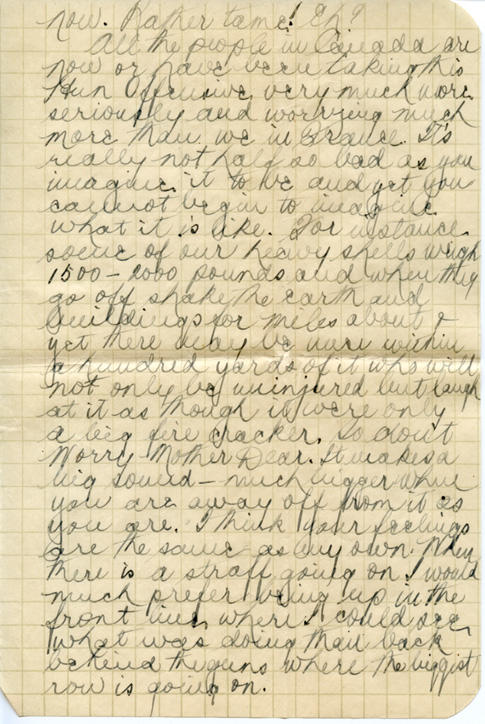 now. Rather tame! Eh?
All the people in Canada are
now or have been taking this
Hun Offensive very much more
seriously and worrying much
more than we in France. It's
really not half so bad as you
imagine it to be and yet you
cannot begin to imagine
what it is like. For instance
some of our heavy shells weigh
1500 - 2000 pounds and when they
go off shake the earth and
buildings for miles about &
yet there may be men within
a hundred yards of it who will
not only be uninjured but laugh
at it as though it were only
a big fire cracker. So don't
Worry Mother Dear. It makes a
big sound - much bigger when
you are away off from it as
you are. I think your feelings
are the same as my own. When
there is a straff going on I would
much prefer being up in the
front line where I could see
what was doing than back
behind the guns where the biggest
row is going on.